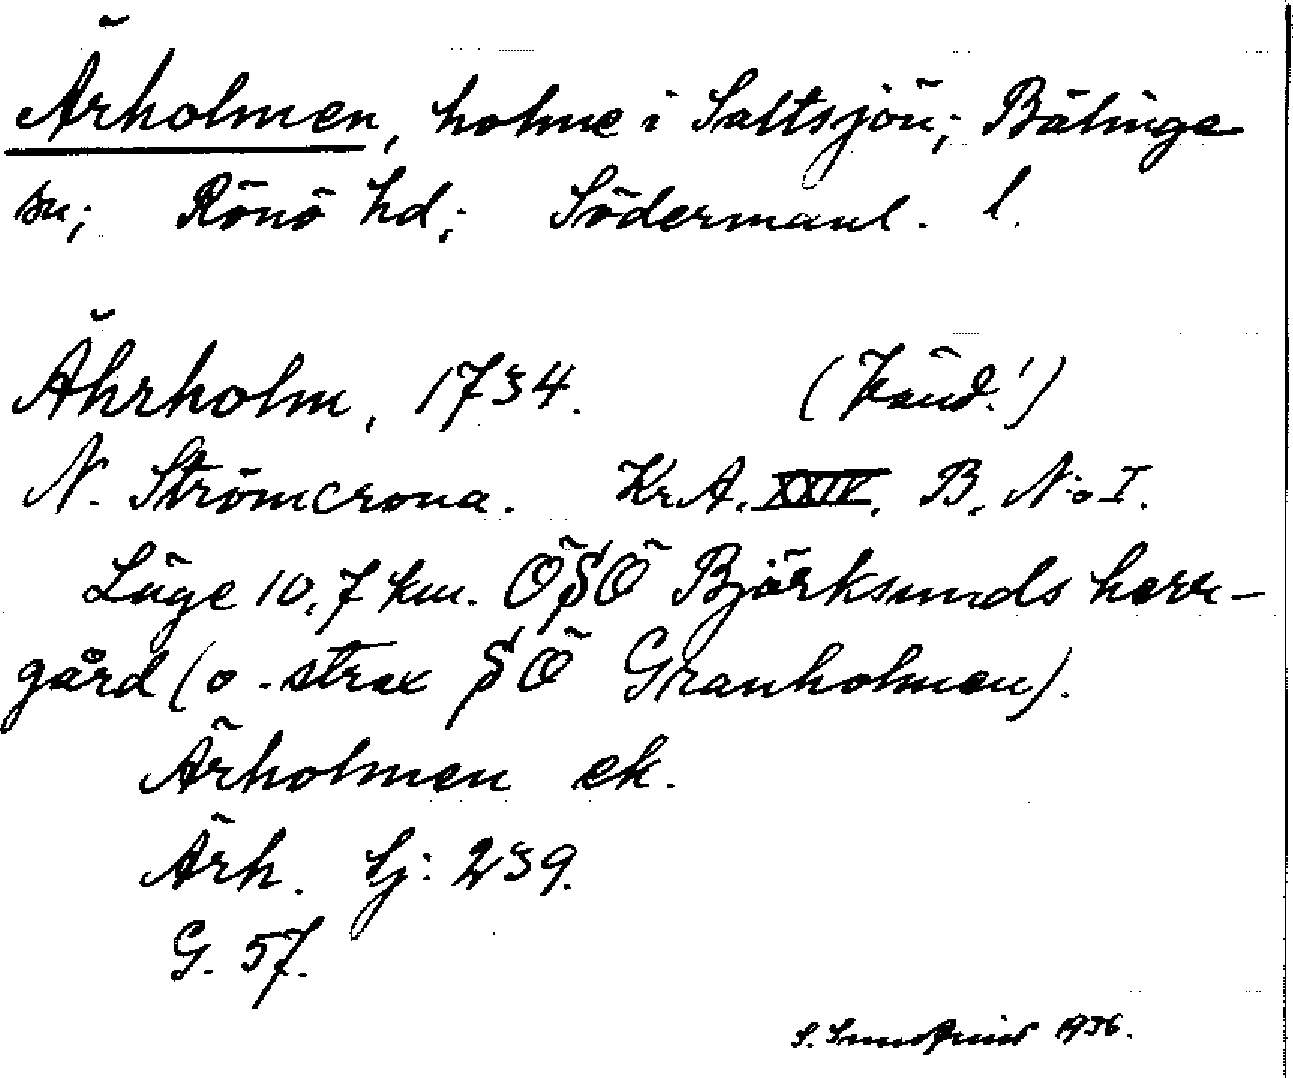 Ärholmen, holme i Saltsjön; Bälinge
sn; Rönö hd; Södermanl. l.
Ährholm, 1734. (Känd!)
N. Strömcrona. Kr.A. XXIV. B. N:o I.
Läge 10,7 km. ÖSÖ Björksunds herr-
gård (o. strax SÖ Granholmen).
Ärholmen ek.
Ärh. Sj: 239.
G. 57.
S. Sundquist 1936.